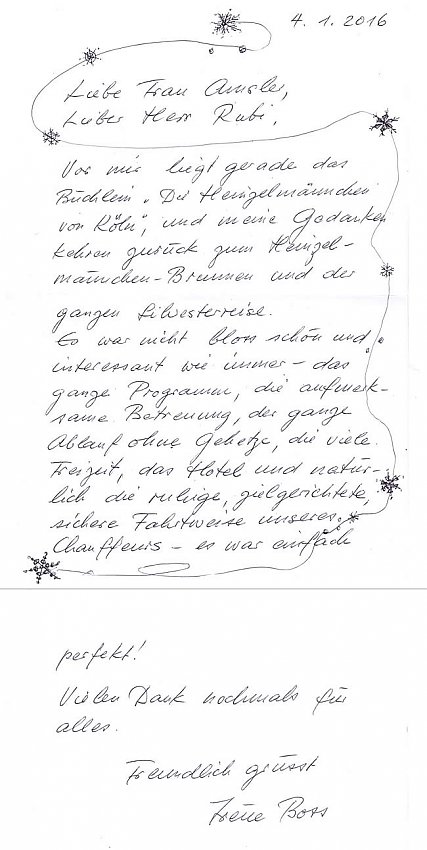 4. 1. 2016
Liebe Frau Amsler,
Lieber Herr Rubi,
Vor mir liegt gerade das
Büchlein „Die Heinzelmännchen
von Köln", und meine Gedanken
kehren zurück zum Heinzel-
männchen-Brunnen und der
ganzen Silvesterreise.
Es war nicht bloss schön und
interessant wie immer – das
ganze Programm, die aufmerk-
same Betreuung, der ganze
Ablauf ohne Gehetze, die viele
Freizeit, das Hotel und natür-
lich die ruhige, zielgerichtete,
sichere Fahrtweise unseres
Chauffeurs – es war einfach
perfekt!
Vielen Dank nochmals für
alles.
Freundlich grüsst
Irène Boss